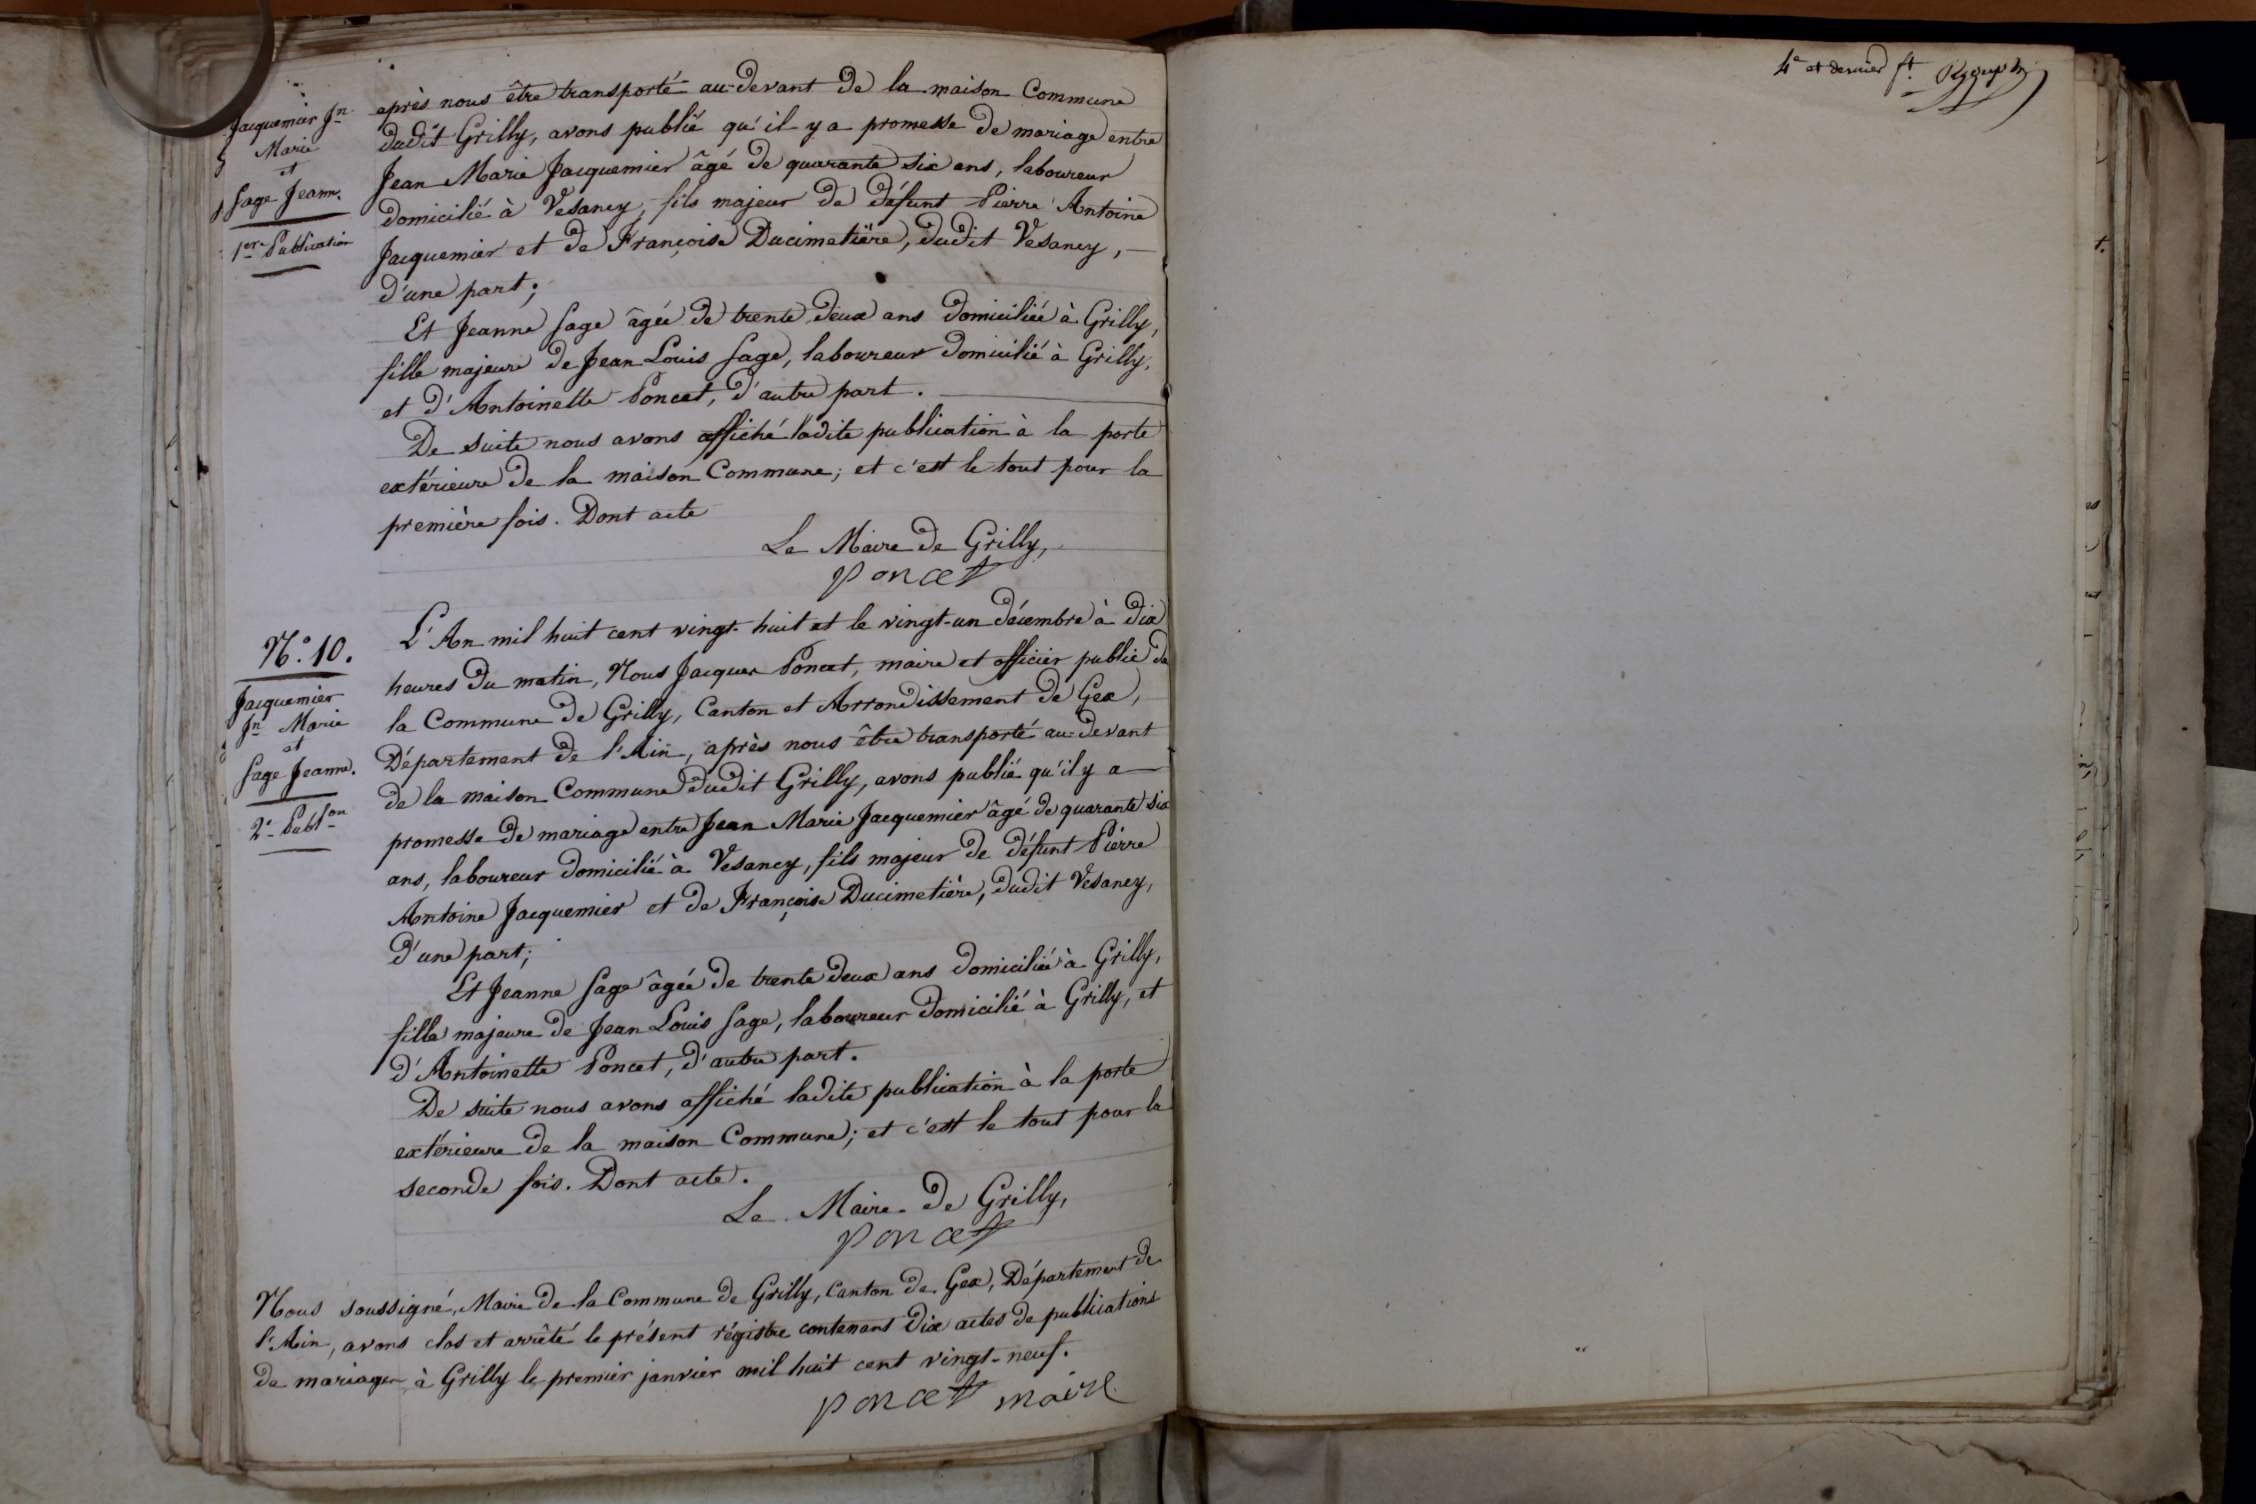 Jacquemier Jn
Marie
et
Sage Jeanne.
1ere Publication
après nous être transporté au-devant de la maison Commune
dudit Grilly, avons publié qu'il y a promesse de mariage entre
Jean Marie Jacquemier âgé de quarante six ans, laboureur
domicilié à Vesancy, fils majeur de défunt Pierre Antoine
Jacquemier et de Françoise Ducimetière, dudit Vesancy,
d'une part;
Et Jeanne Sage âgée de trente deux ans domiciliée à Grilly,
fille majeure de Jean Louis Sage, laboureur domicilié à Grilly,
et d'Antoinette Poncet, d'autre part.
De suite nous avons affiché ladite publication à la porte
extérieure de la maison Commune; et c'est le tout pour la
première fois. Dont acte
Le Maire de Grilly,
Poncet
N.o 10.
Jacquemier
Jn Marie
et
Sage Jeanne.
2e Publon
L'An mil huit cent vingt-huit et le vingt-un décembre à dix
heures du matin, Nous Jacques Poncet, maire et officier public de
la Commune de Grilly, Canton et Arrondissement de Gex,
Département de l'Ain, après nous être transporté au-devant
de la maison Commune dudit Grilly, avons publié qu'il y a
promesse de mariage entre Jean Marie Jacquemier âgé de quarante six
ans, laboureur domicilié à Vesancy, fils majeur de défunt Pierre
Antoine Jacquemier et de Françoise Ducimetière, dudit Vesancy,
d'une part;
Et Jeanne Sage âgée de trente deux ans domiciliée à Grilly,
fille majeure de Jean Louis Sage, laboureur domicilié à Grilly, et
d'Antoinette Poncet, d'autre part.
De suite nous avons affiché ladite publication à la porte
extérieure de la maison Commune; et c'est le tout pour la
seconde fois. Dont acte.
Le Maire de Grilly,
Poncet
Nous soussigné, Maire de la Commune de Grilly, Canton de Gex, Département de
l'Ain, avons clos et arrêté le présent régistre contenant dix actes de publications
de mariage à Grilly le premier janvier mil huit cent vingt-neuf.
Poncet maire
4e et dernier ft.